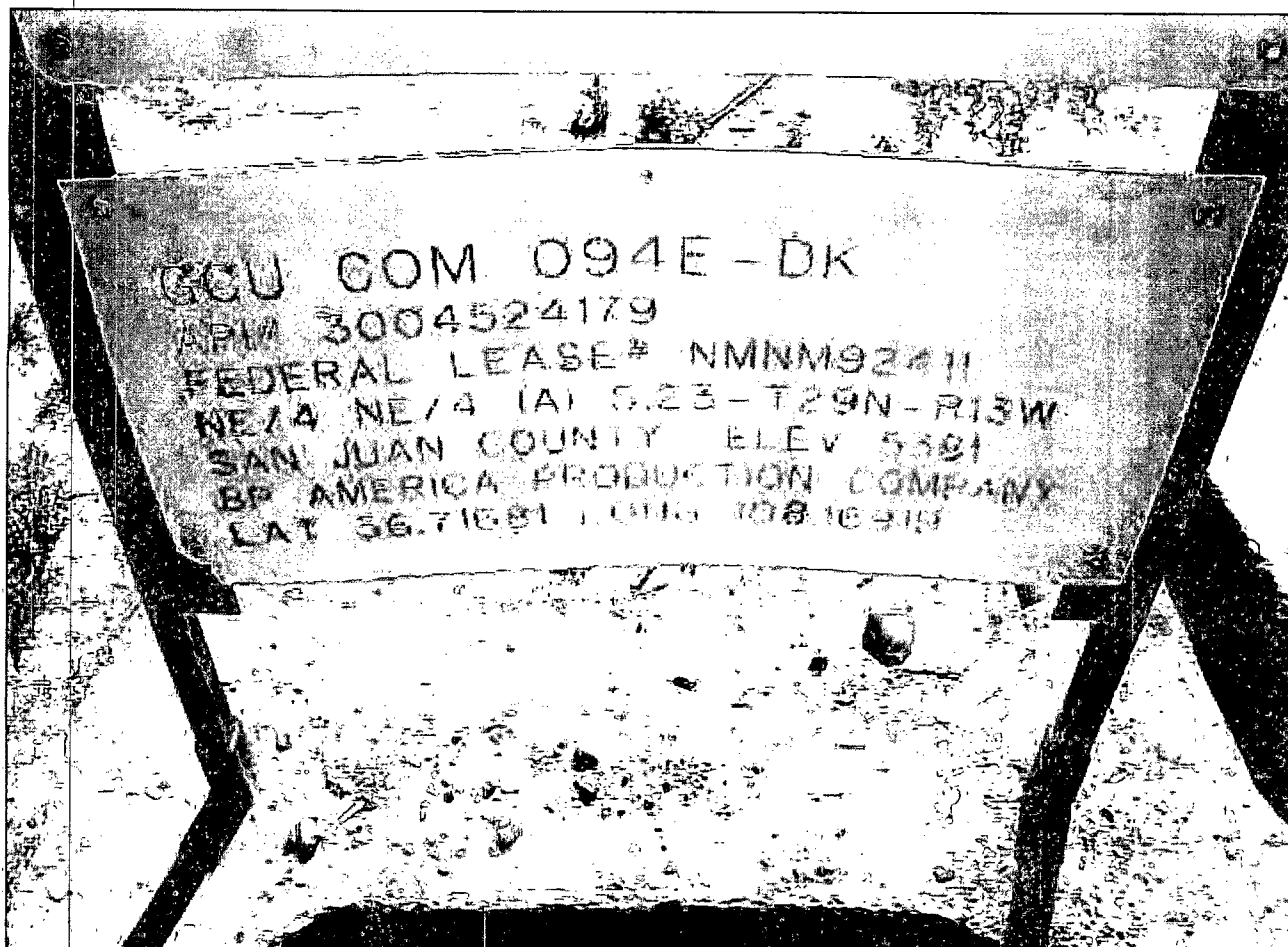 GCU COM 094E-DK
API# 3004524179
FEDERAL LEASE# NMNM92411
NE/4 NE/4 (A) S.23-T29N-R13W
SAN JUAN COUNTY ELEV 5391
BP AMERICA PRODUCTION COMPANY
LAT 36.71691 LONG